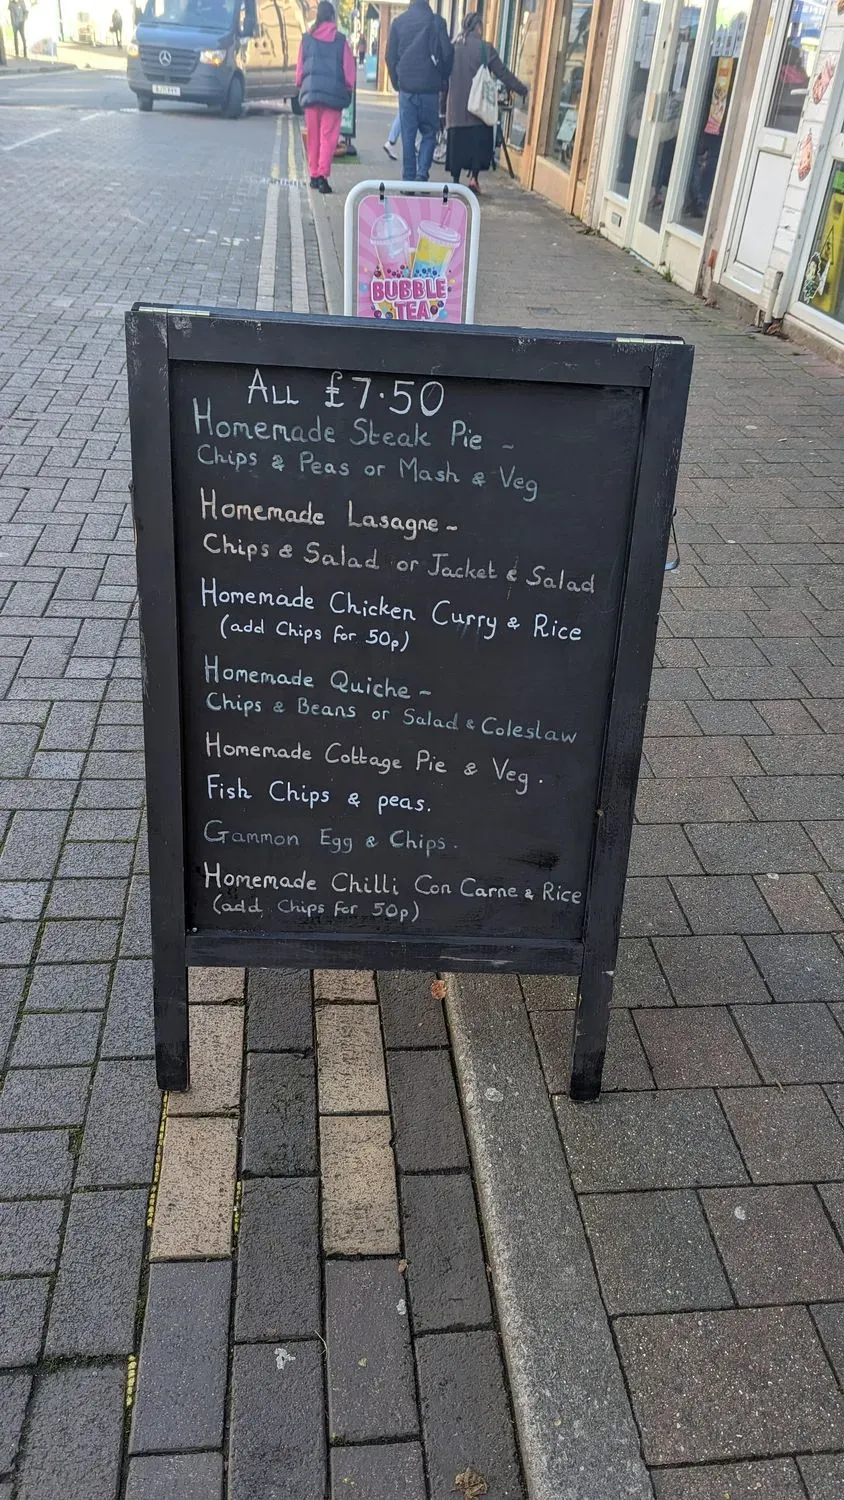 BUBBLE
TEA
ALL £7.50
Homemade Steak Pie -
Chips & Peas or Mash & Veg
Homemade Lasagne -
Chips & Salad or Jacket & Salad
Homemade Chicken Curry & Rice
(add Chips for 50p)
Homemade Quiche -
Chips & Beans or Salad & Coleslaw
Homemade Cottage Pie & Veg.
Fish Chips & peas.
Gammon Egg & Chips.
Homemade Chilli Con Carne & Rice
(add Chips for 50p)